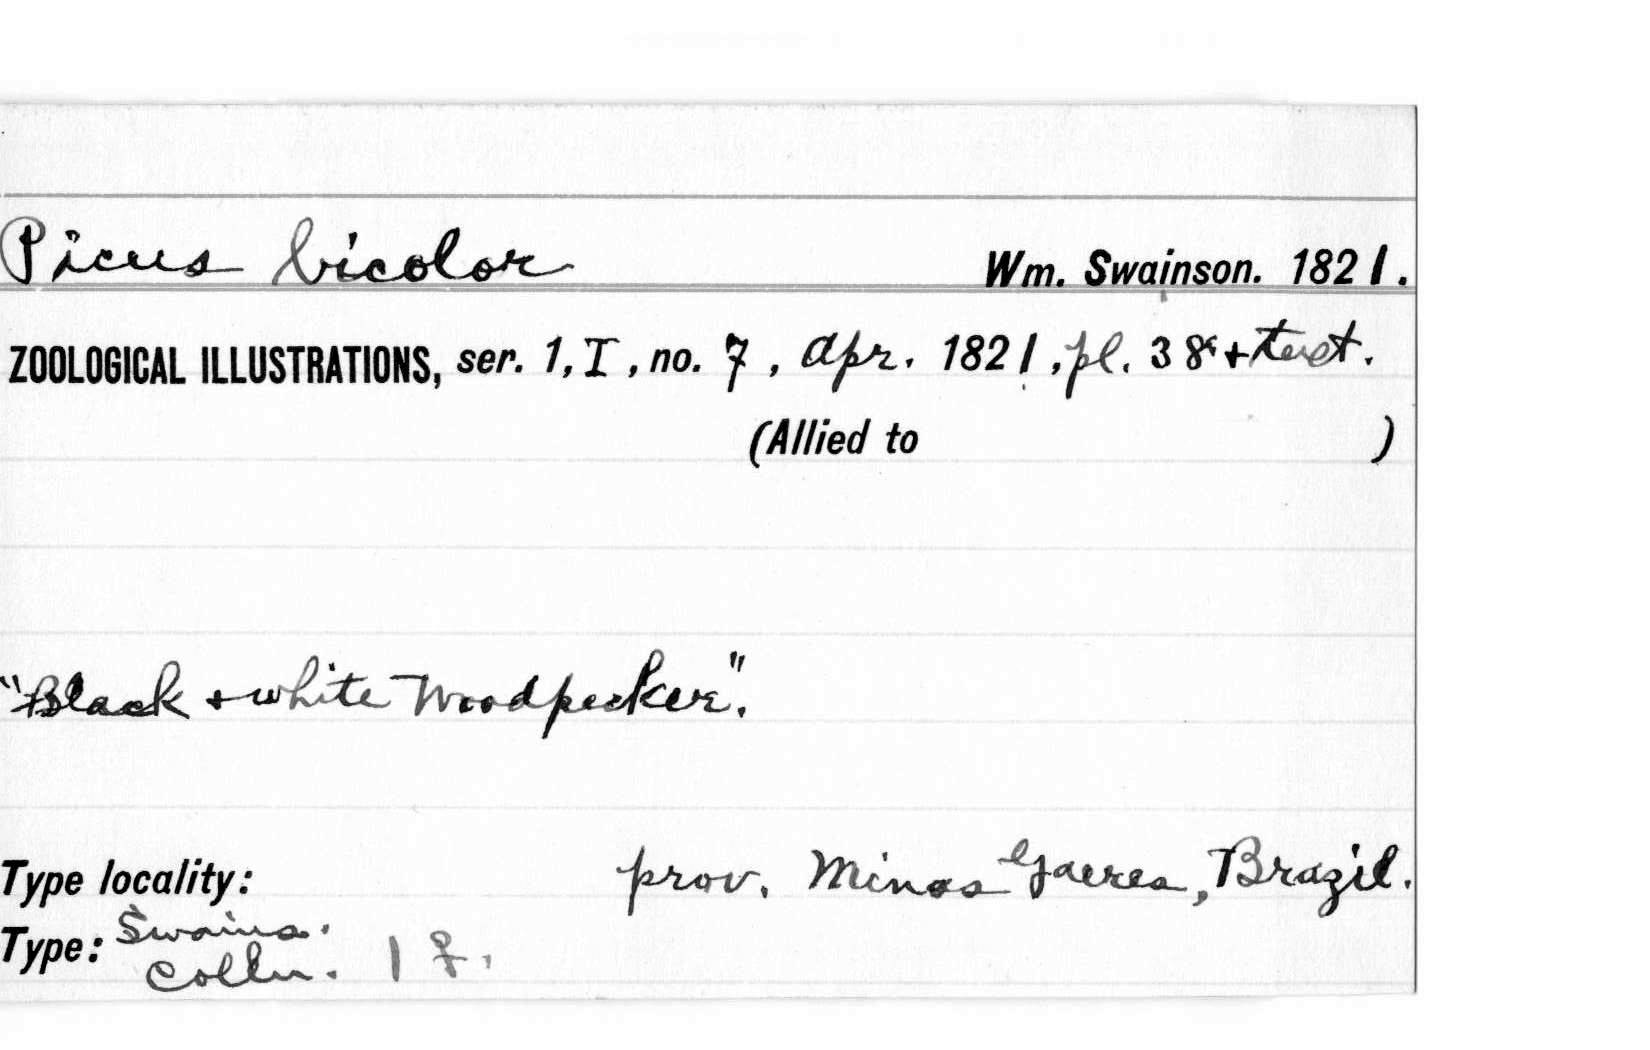 Picus bicolor Wm. Swainson. 1821.
ZOOLOGICAL ILLUSTRATIONS, ser. 1, I, no. 7, Apr. 1821, pl. 38 + text.
(Allied to )
"Black + white Woodpecker".
Type locality: prov. Minas Gaeres, Brazil.
Type: Swains.
Colln. 1 ♀.